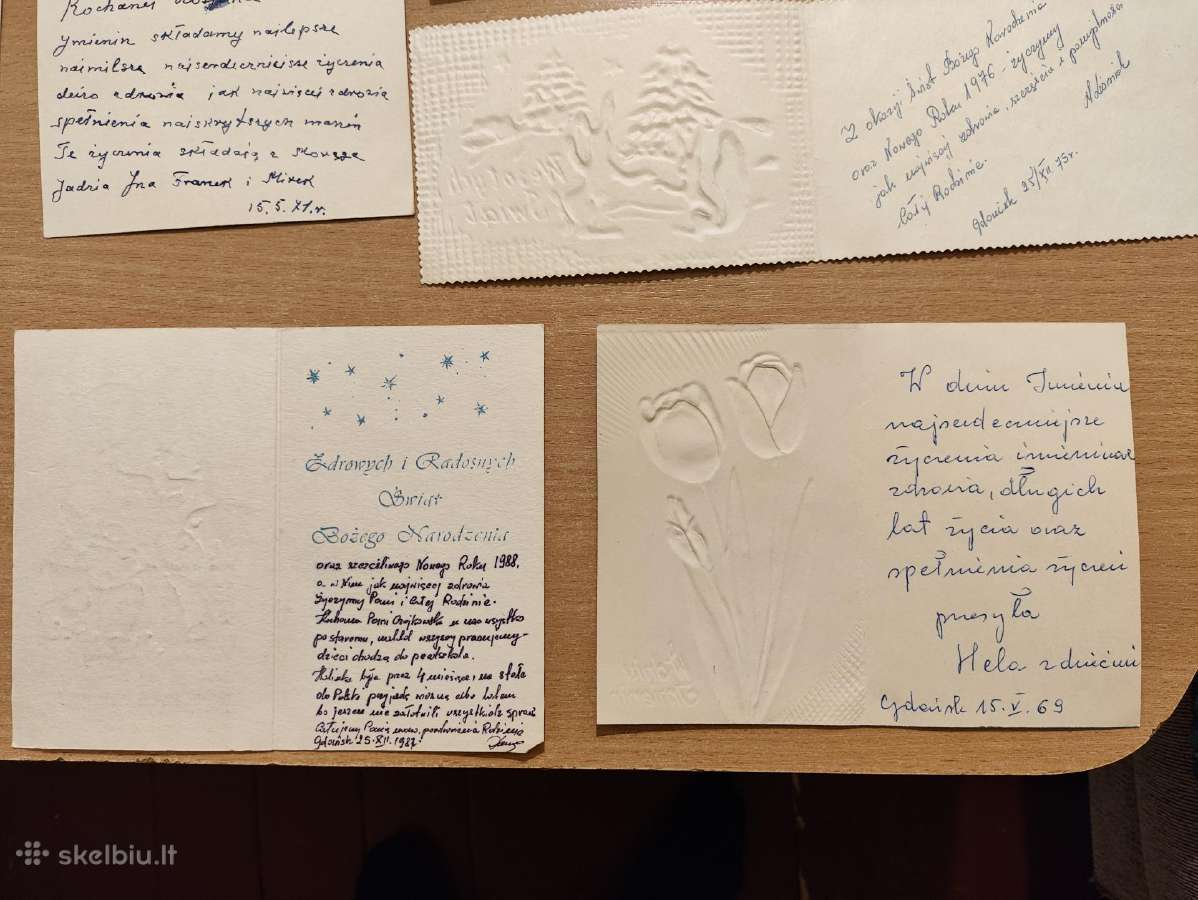 Kochanej
Ymienin składamy najlepsze
najmilsze najserdeczniejsze życzenia
dużo zdrowia jak najwięcej zdrowia
spełnienia najskrytszych marzeń
Te życzenia składają z
Jadzia Ina Franek i Mirek
15.5.71.r.
Z okazji Świąt Bożego Narodzenia
oraz Nowego Roku 1976 - życzymy
jak najwięcej zdrowia, szczęścia i pomyślności
Całej Rodzinie.
Adamik
Gdańsk 25/XII 75r.
Zdrowych i Radosnych
Świąt
Bożego Narodzenia
oraz szczęśliwego Nowego Roku 1988,
a w Nim jak najwięcej zdrowia
życzymy Pani i Całej Rodzinie.
Kochana Pani u nas wszystko
po staremu, wszyscy pracujemy-
dzieci chodzą do przedszkola.
była przez 4 miesiące, na stałe
do Polski przyjadą może albo
bo jeszcze nie załatwili wszystkich spraw
Całujemy Panią pozdrowienia
Gdańsk 25.XII.1987.
W dniu Imienia
najserdeczniejsze
życzenia imieninowe
zdrowia, długich
lat życia oraz
spełnienia życzeń
przesyła
Hela z dziećmi
Gdańsk 15.V.69
Wesołych
Świąt
skelbiu.lt